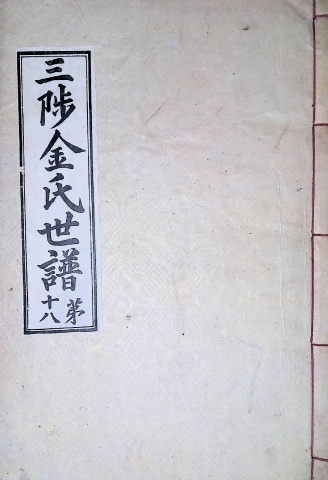 三陟金氏世譜
第十八